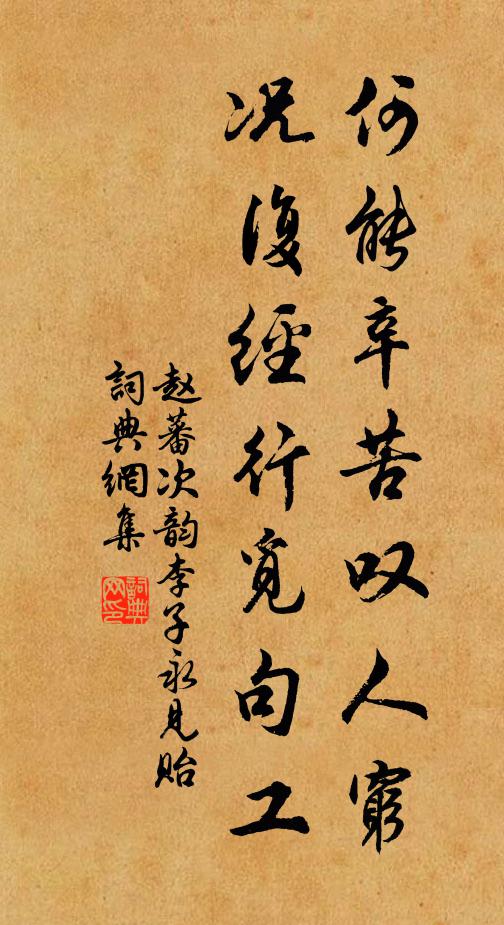 何能辛苦叹人窮
况復經行覓句工
赵蕃次韵李子永见贻
詞典網集
詞典網印